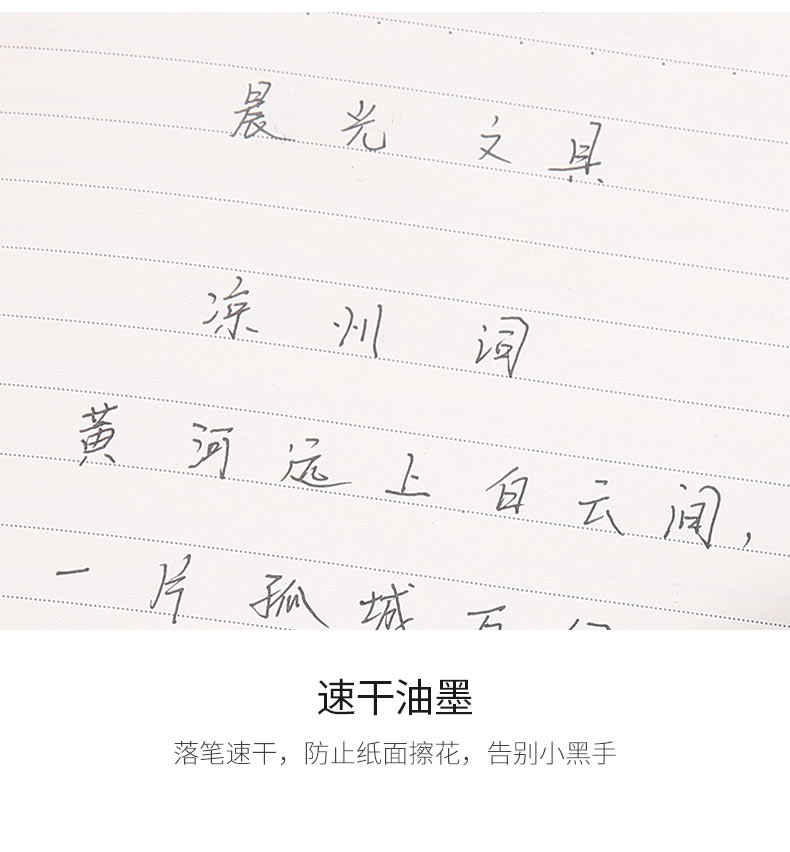 晨光 文具
凉州词
黄河远上白云间，
一片孤城万仞
速干油墨
落笔速干，防止纸面擦花，告别小黑手